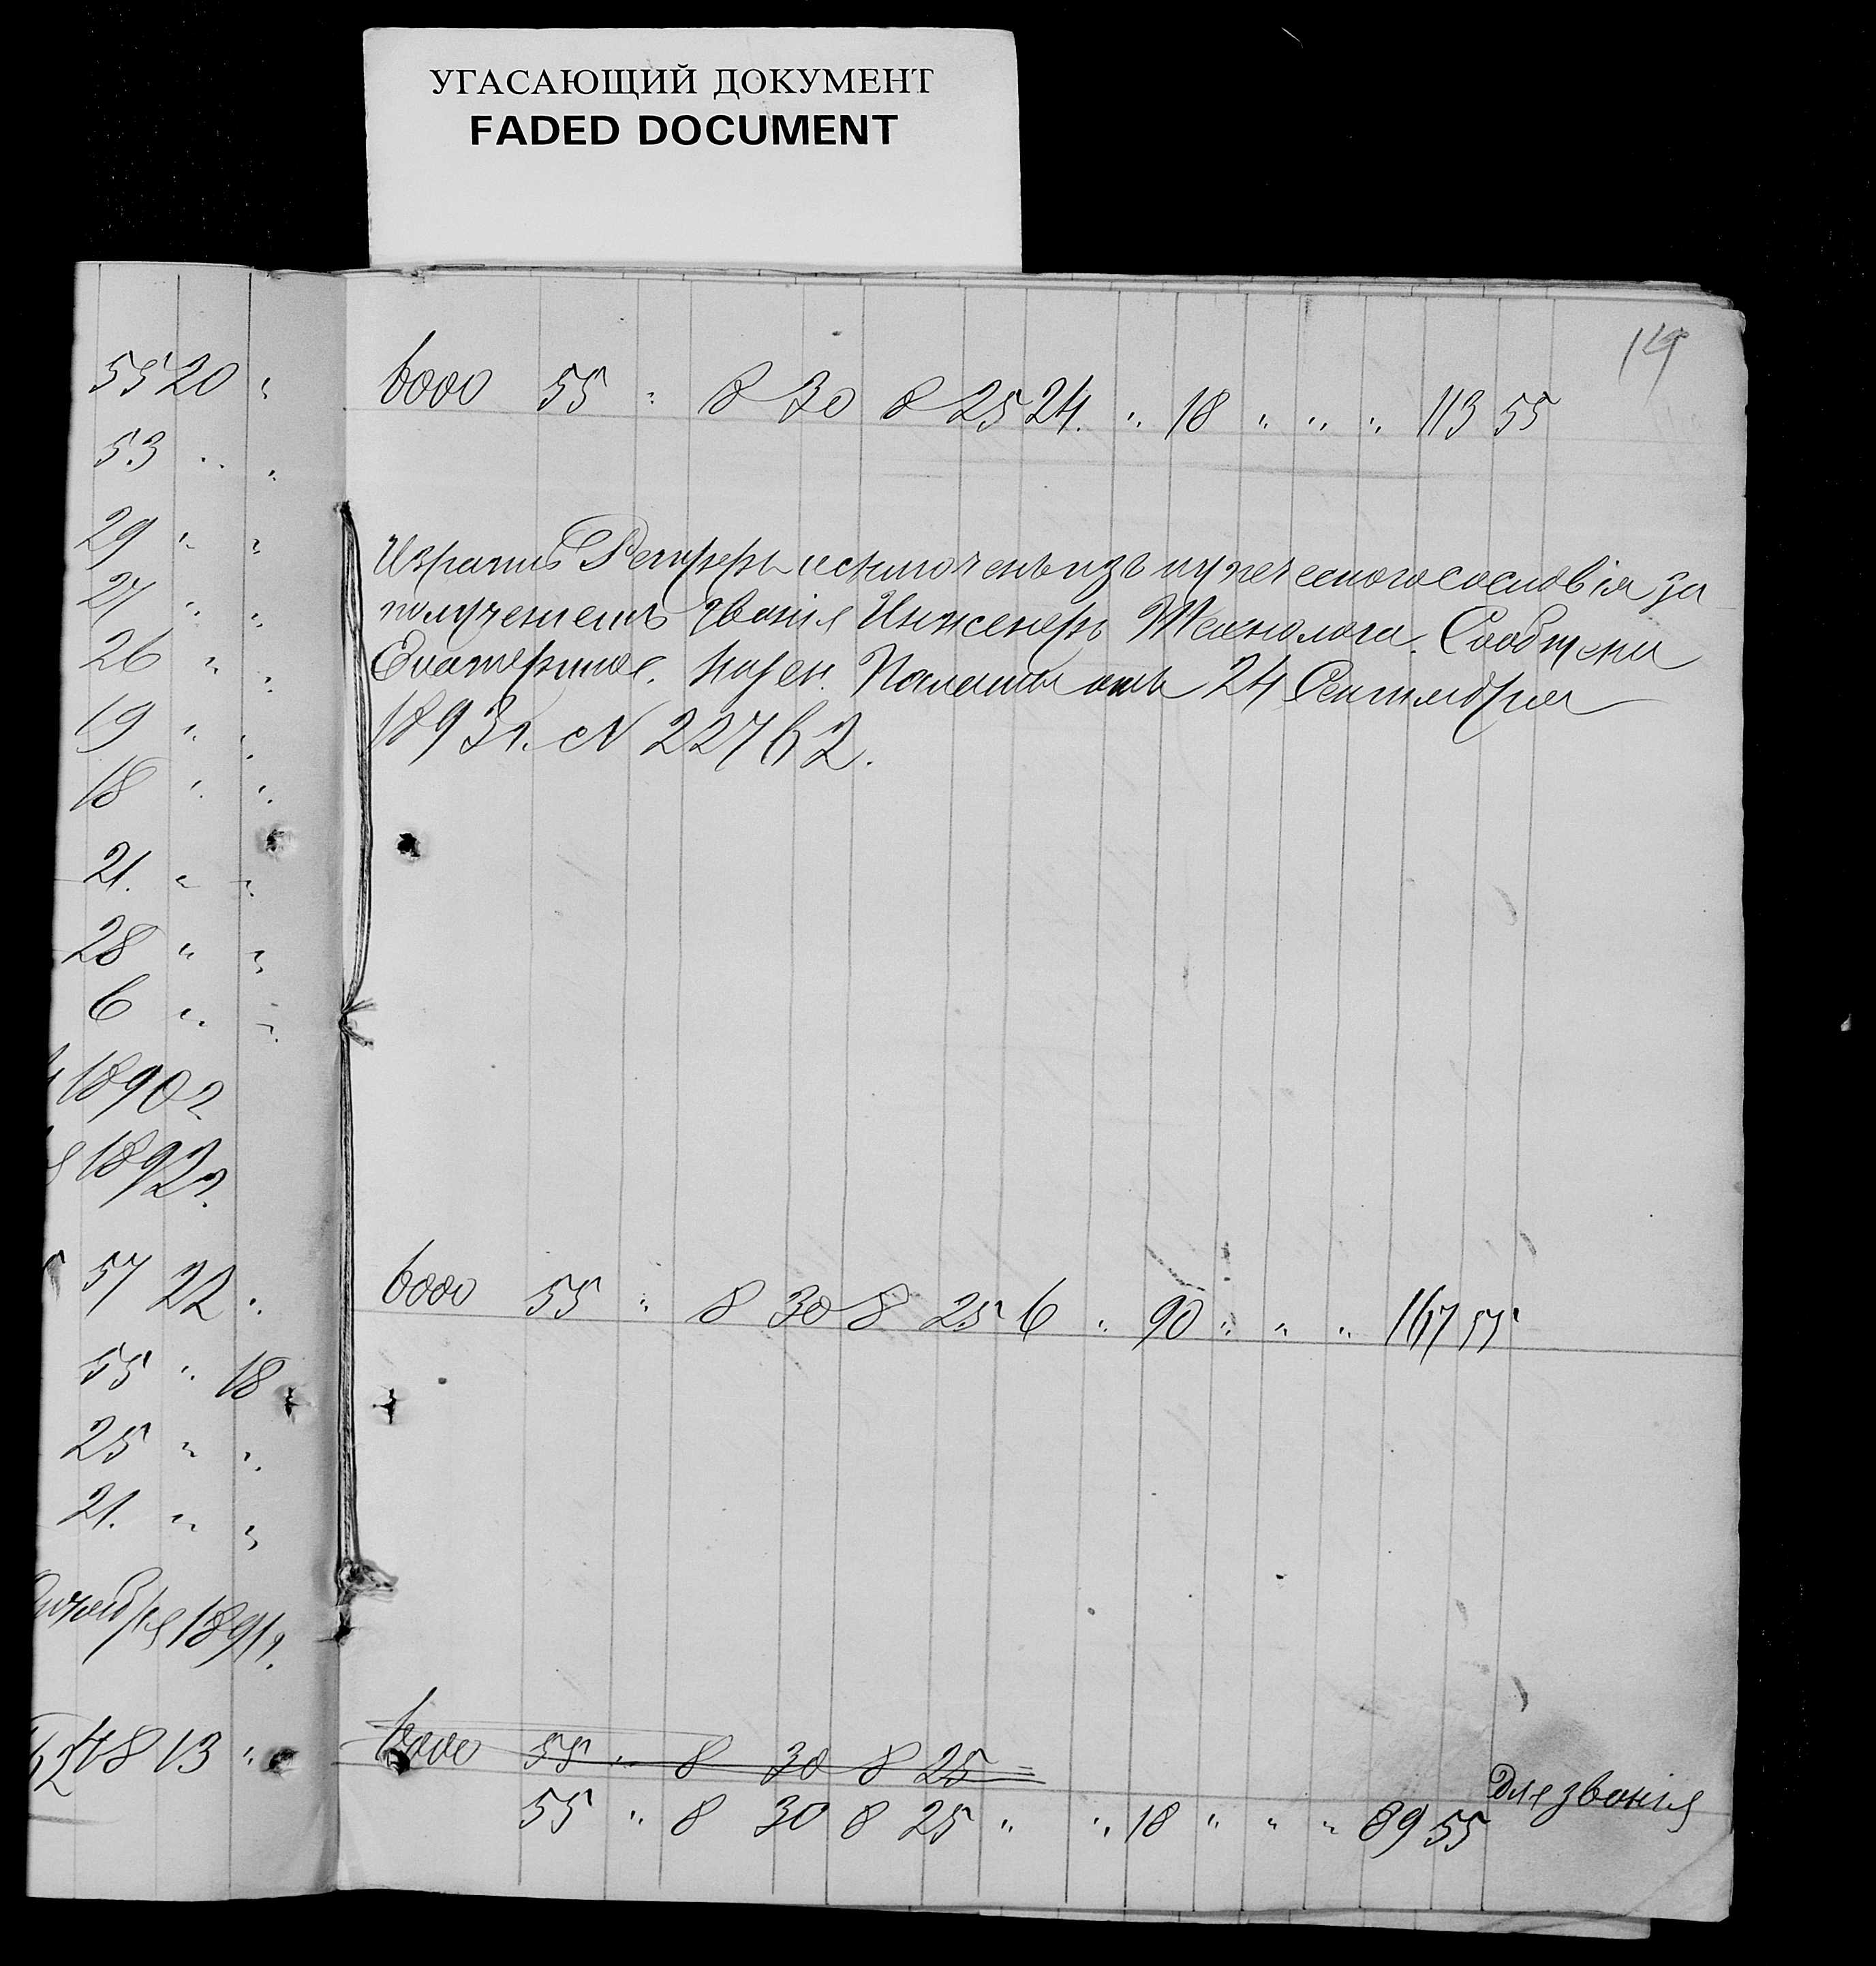 УГАСАЮЩИЙ ДОКУМЕНТ
FADED DOCUMENT
19
55 20 "
53 " "
29 " "
27 " "
26 " "
19 " "
18 " "
21. " "
28 " "
6 " "
1890 г
1892 г.
57 22 "
55 " 18
25 " "
21. " "
1891 г.
48 13 "
6000 55 " 8 30 8 25 24. " 18 " " " 113 55
Израиль исключенъ изъ купеческого сословія за
полученіемъ званія Инженеръ Технолога. Сообщени
Екатеринос. Казен. Палаты отъ 24 Сентября
1893 г. № 22762.
6000 55 " 8 30 8 25 6 " 90 " " " 167 55
6000 55 " 8 30 8 25
для званія
55 " 8 30 8 25 " " 18 " " " 89 55